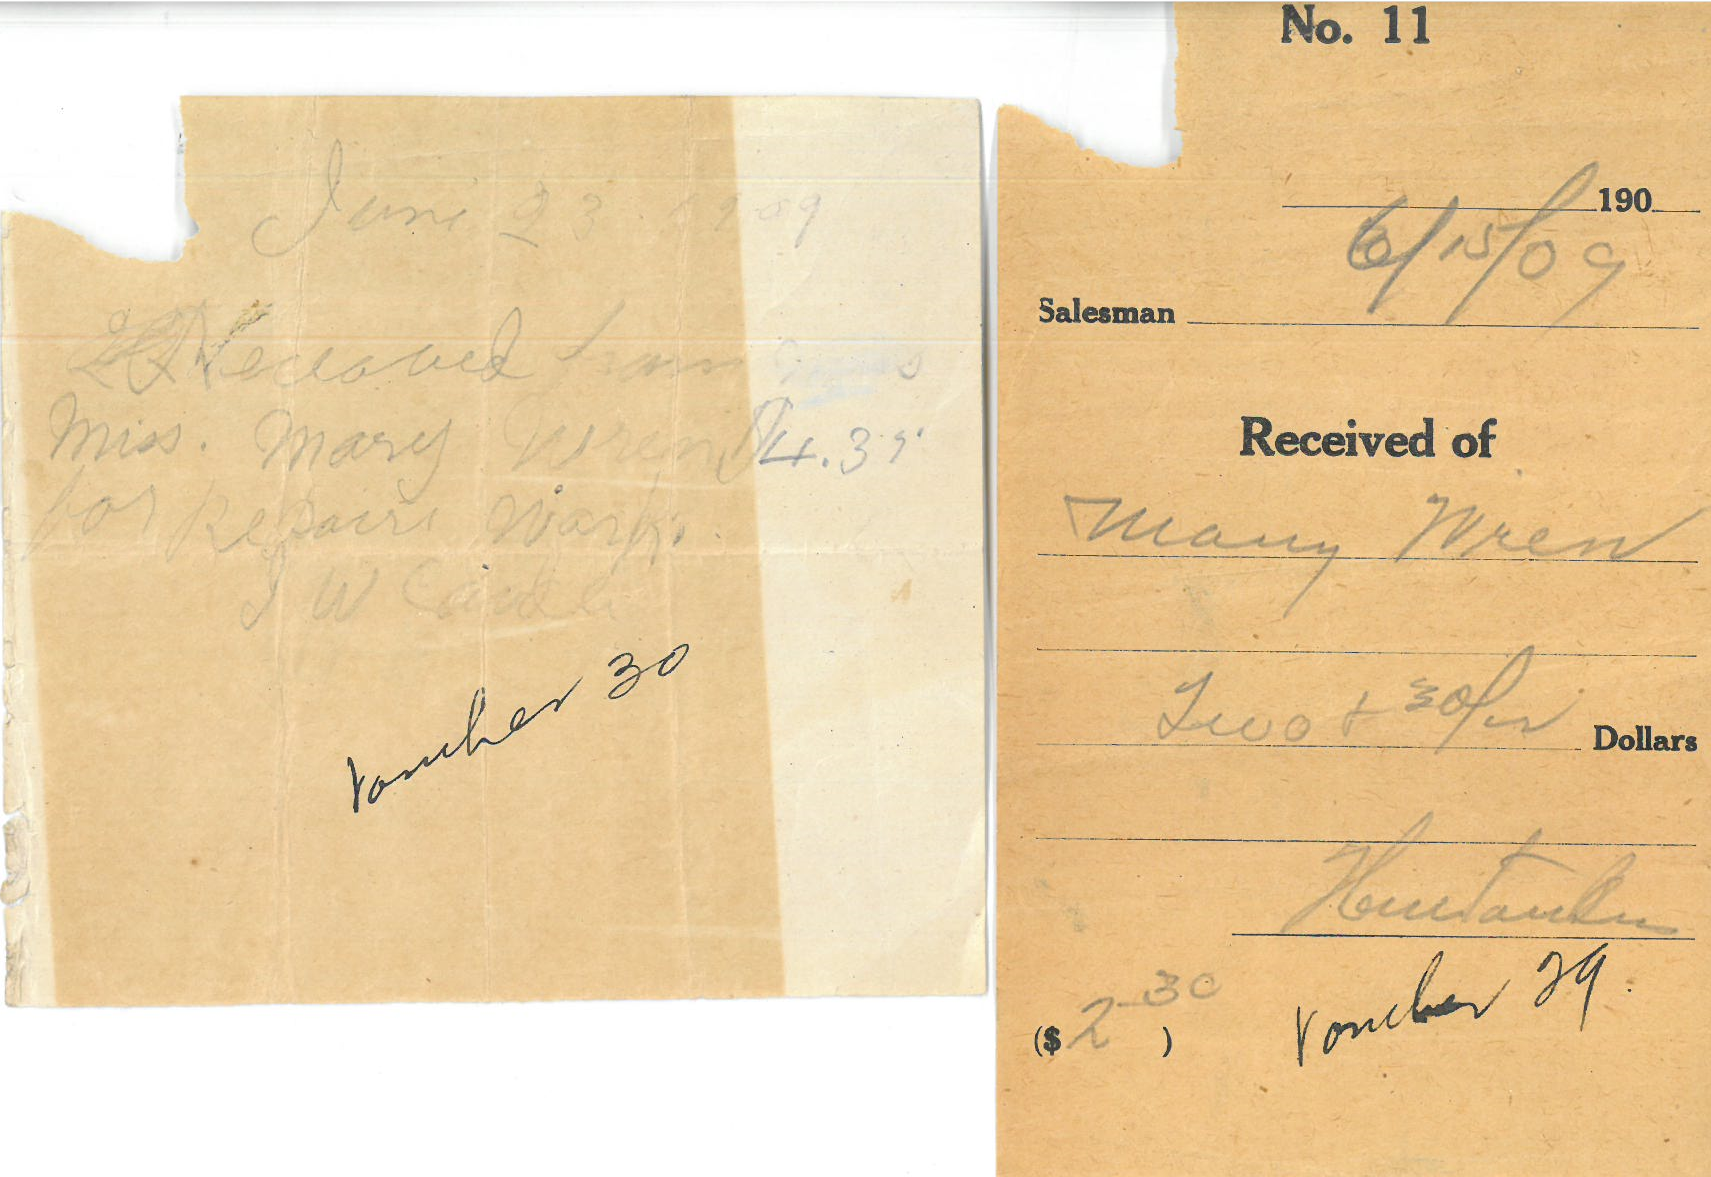 June 23 1909
Receaved from
Miss. Mary Wren $4.35
for Repairs Work.
J W
Voucher 30
No. 11
190
6/15/09
Salesman
Received of
Mary Wren
Two + 30/
Dollars
($ 2 30 )
Voucher 29.